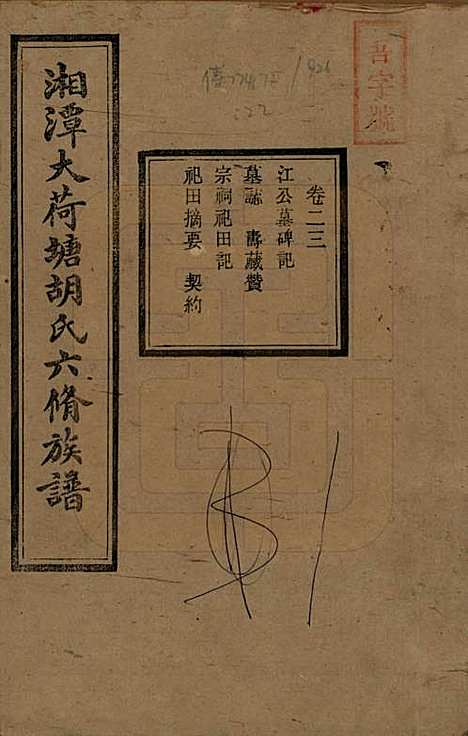 湘潭大荷塘胡氏六脩族譜
卷二三
江公墓碑記
墓誌 壽藏贊
宗祠祀田記
祀田摘要 契約
吾字號